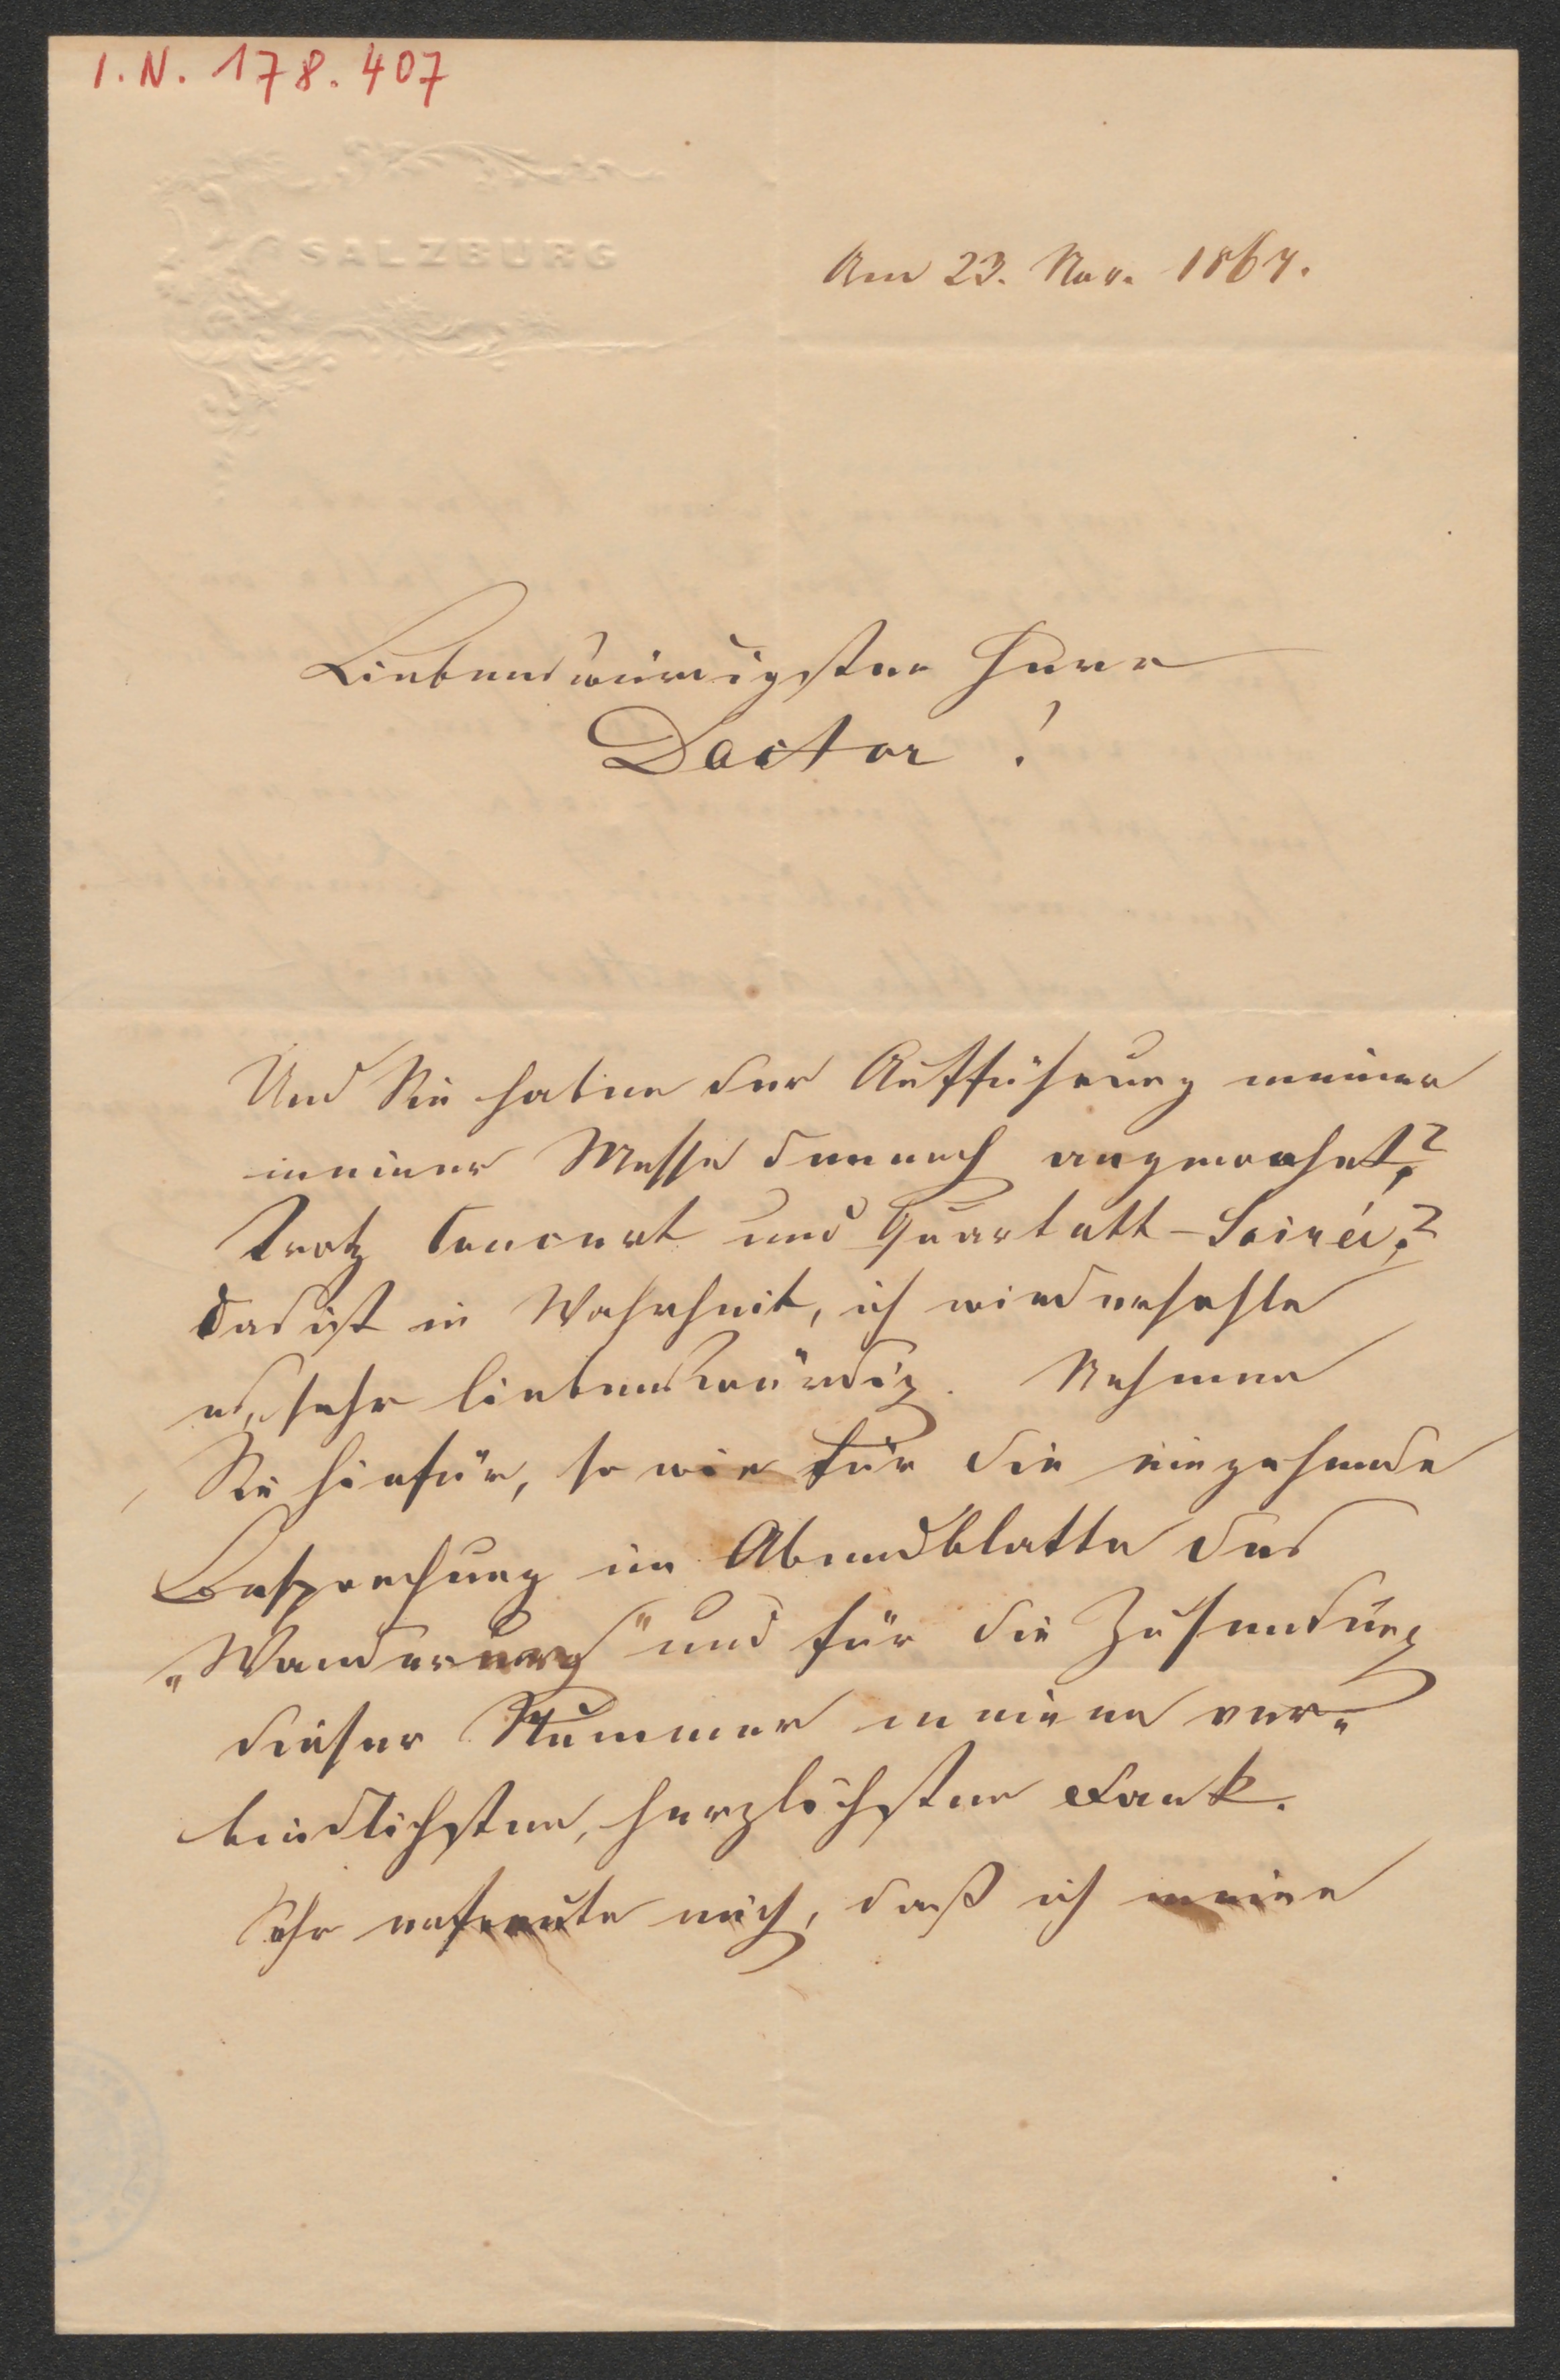 I.N. 178.407
SALZBURG
Am 23. Nov. 1864.
Liebenswürdigster Herr
Doctor!
Und Sie haben der Aufführung meiner
meiner Messe dennoch angewohnt?
Trotz Concert und Quartett-Soirée?
das ist in Wahrheit, ich wiederhohle
es, sehr liebenswürdig. Nehmen
Sie hiefür, so wie für die eingehende
Besprechung im Abendblatte des
„Wanderers" und für die Zusendung
dieser Nummer meinen ver=
bindlichsten, herzlichsten Dank.
Sehr erfreute mich, daß ich meine